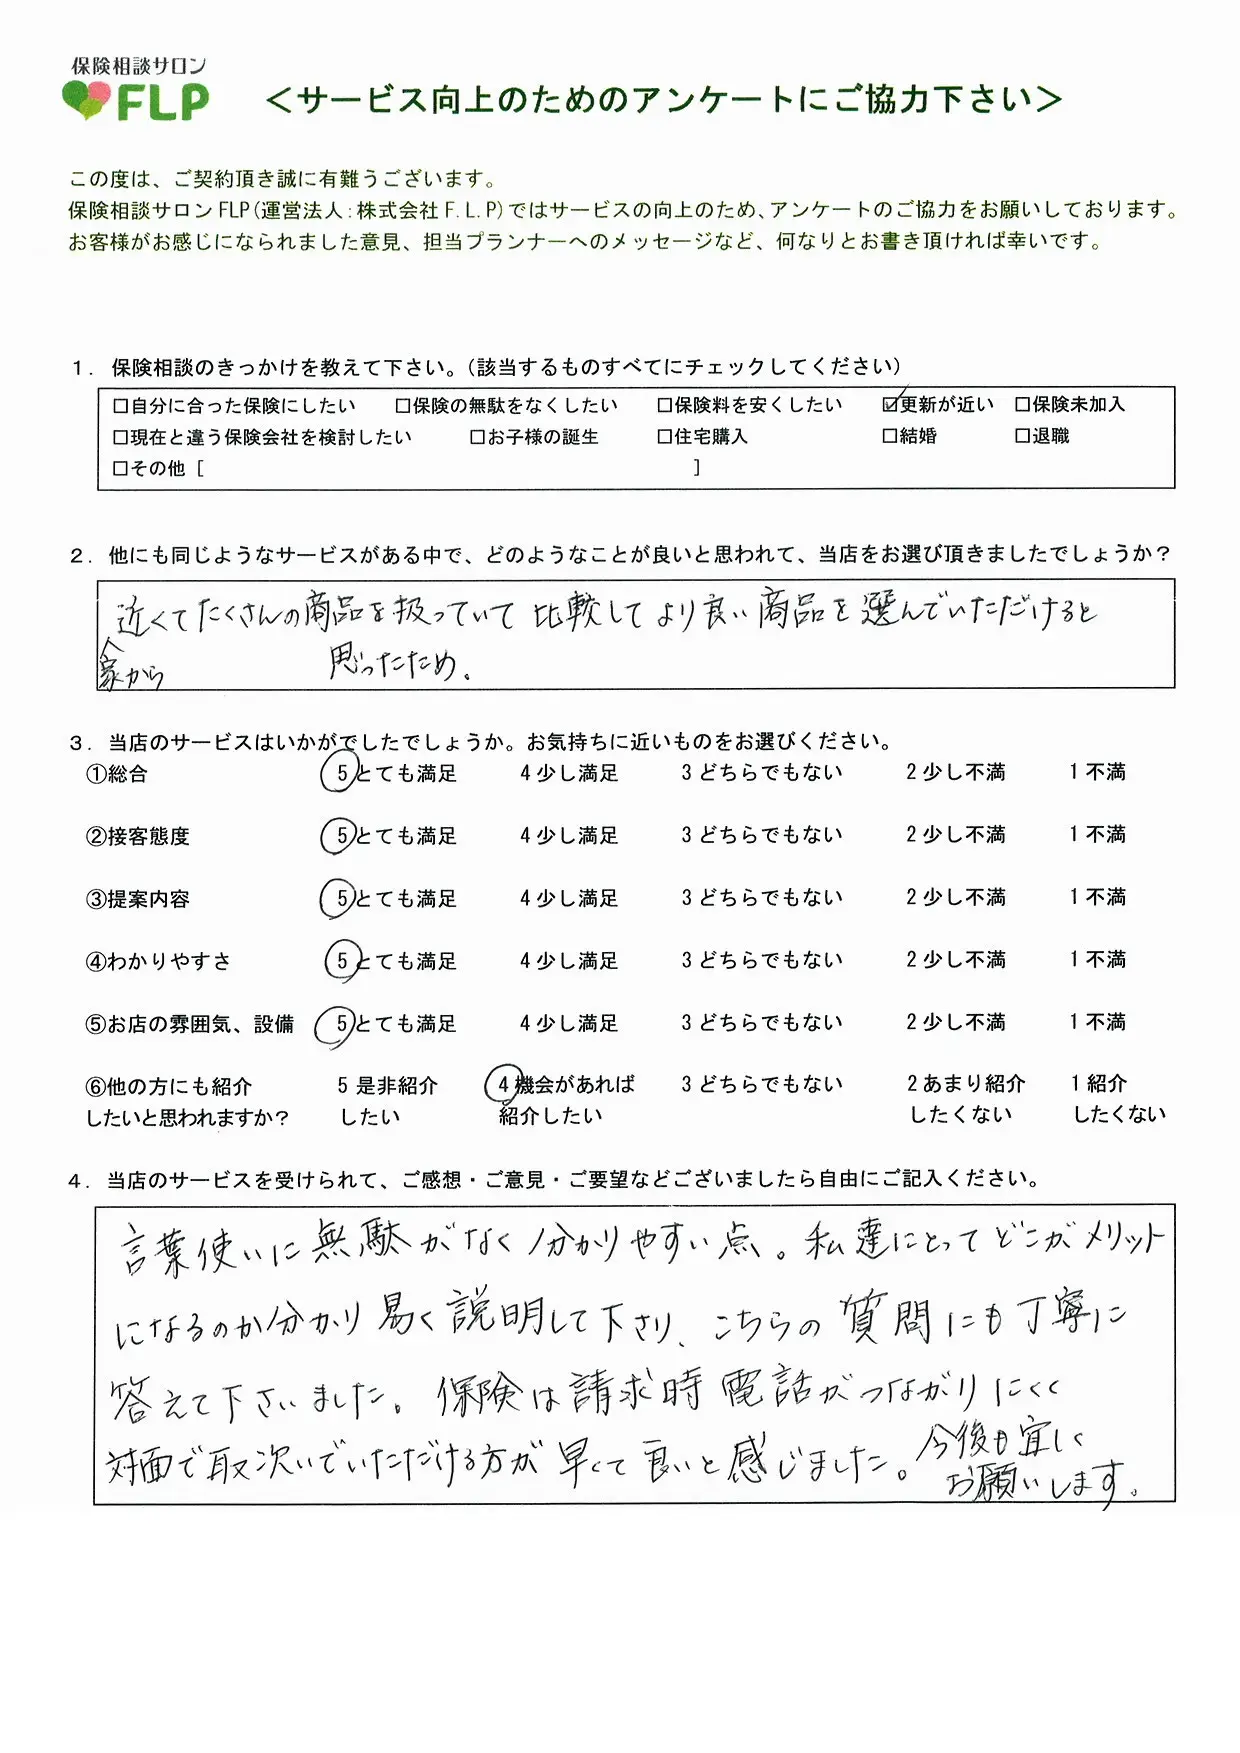 保険相談サロン
FLP
＜サービス向上のためのアンケートにご協力下さい＞
この度は、ご契約頂き誠に有難うございます。
保険相談サロンFLP(運営法人:株式会社F.L.P)ではサービスの向上のため、アンケートのご協力をお願いしております。
お客様がお感じになられました意見、担当プランナーへのメッセージなど、何なりとお書き頂ければ幸いです。
１．保険相談のきっかけを教えて下さい。（該当するものすべてにチェックしてください）
□自分に合った保険にしたい □保険の無駄をなくしたい □保険料を安くしたい ☑更新が近い □保険未加入
□現在と違う保険会社を検討したい □お子様の誕生 □住宅購入 □結婚 □退職
□その他［ ］
２．他にも同じようなサービスがある中で、どのようなことが良いと思われて、当店をお選び頂きましたでしょうか？
近くてたくさんの商品を扱っていて 比較してより良い商品を選んでいただけると
家から 思ったため。
３．当店のサービスはいかがでしたでしょうか。お気持ちに近いものをお選びください。
①総合 5とても満足 4少し満足 3どちらでもない 2少し不満 1不満
②接客態度 5とても満足 4少し満足 3どちらでもない 2少し不満 1不満
③提案内容 5とても満足 4少し満足 3どちらでもない 2少し不満 1不満
④わかりやすさ 5とても満足 4少し満足 3どちらでもない 2少し不満 1不満
⑤お店の雰囲気、設備 5とても満足 4少し満足 3どちらでもない 2少し不満 1不満
⑥他の方にも紹介 5是非紹介 4機会があれば 3どちらでもない 2あまり紹介 1紹介
したいと思われますか？ したい 紹介したい したくない したくない
４．当店のサービスを受けられて、ご感想・ご意見・ご要望などございましたら自由にご記入ください。
言葉使いに無駄がなく分かりやすい点。私達にとってどこがメリット
になるのか分かり易く説明して下さり、こちらの質問にも丁寧に
答えて下さいました。保険は請求時電話がつながりにくく
対面で取次いでいただける方が早くて良いと感じました。今後も宜しく
お願いします。